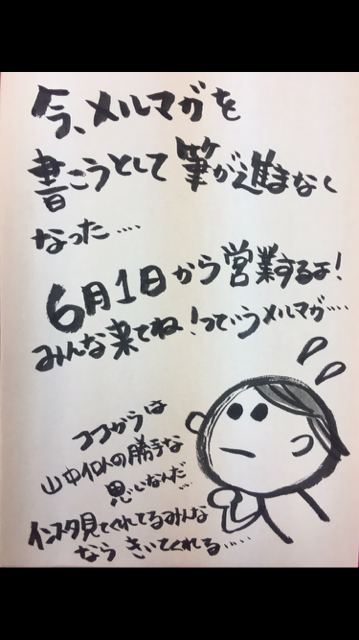 今、メルマガを
書こうとして筆が進まなく
なった‥‥
6月1日から営業するよ!
みんな来てね!っていうメルマガ‥‥
ココからは
山中の勝手な
思いなんだ‥
インスタ見てくれてるみんな
なら きいてくれる‥‥‥